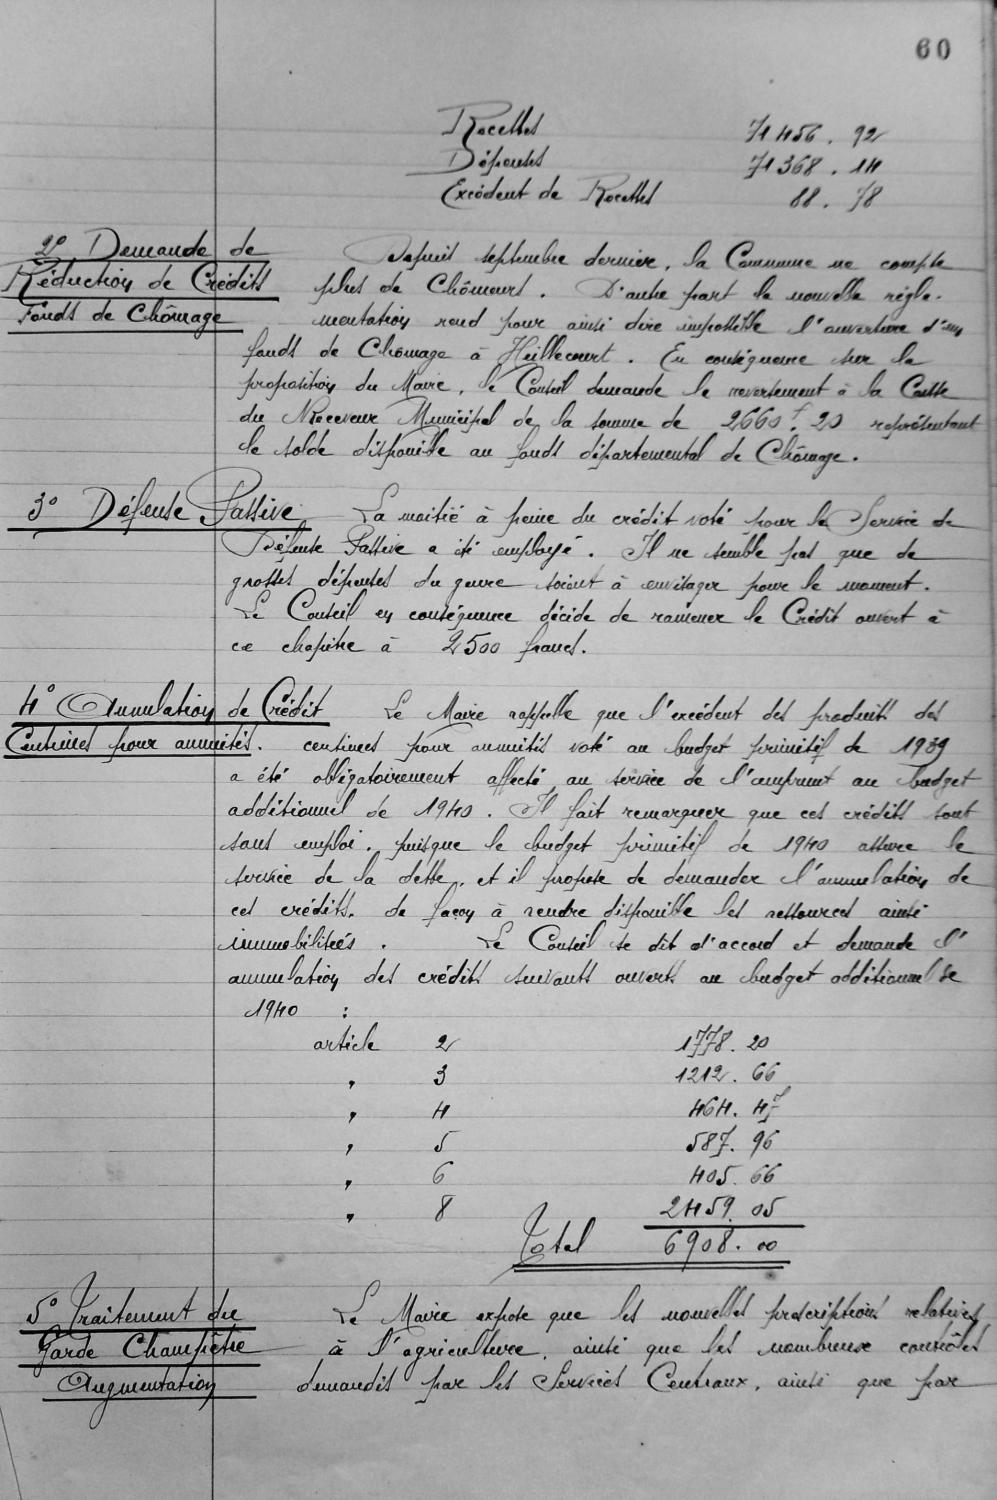 60
Recettes 71 456. 92
Dépenses 71 368. 14
Excédent de Recettes 88. 78
2° Demande de
Réduction de Crédits
Fonds de Chômage
Depuis septembre dernier, la Commune ne compte
plus de Chômeurs. D'autre part la nouvelle règle-
mentation rend pour ainsi dire impossible l'ouverture d'un
fonds de Chômage à Heillecourt. En conséquence sur la
proposition du Maire, le Conseil demande le reversement à la Caisse
du Receveur Municipal de la somme de 2660f.20 représentant
le solde disponible au fonds départemental de Chômage.
3° Défense Passive
La moitié à peine du crédit voté pour le Service de
Défense Passive a été employé. Il ne semble pas que de
grosses dépenses du genre soient à envisager pour le moment.
Le Conseil en conséquence décide de ramener le Crédit ouvert à
ce chapitre à 2500 francs.
4° Annulation de Crédit
Centimes pour annuités.
Le Maire rappelle que l'excédent des produits des
centimes pour annuités voté au budget primitif de 1939
a été obligatoirement affecté au service de l'emprunt au budget
additionnel de 1940. Il fait remarquer que ces crédits sont
sans emploi, puisque le budget primitif de 1940 assure le
service de la dette, et il propose de demander l'annulation de
ces crédits, de façon à rendre disponible les ressources ainsi
immobilisées. Le Conseil se dit d'accord et demande l'
annulation des crédits suivants ouverts au budget additionnel de
1940 :
article 2 1778. 20
" 3 1212. 66
" 4 464. 47
" 5 587. 96
" 6 405. 66
" 8 2459. 05
Total 6908. 00
5° Traitement du
Garde Champêtre
Augmentation
Le Maire expose que les nouvelles prescriptions relatives
à l'agriculture, ainsi que les nombreux contrôles
demandés par les Services Centraux, ainsi que par